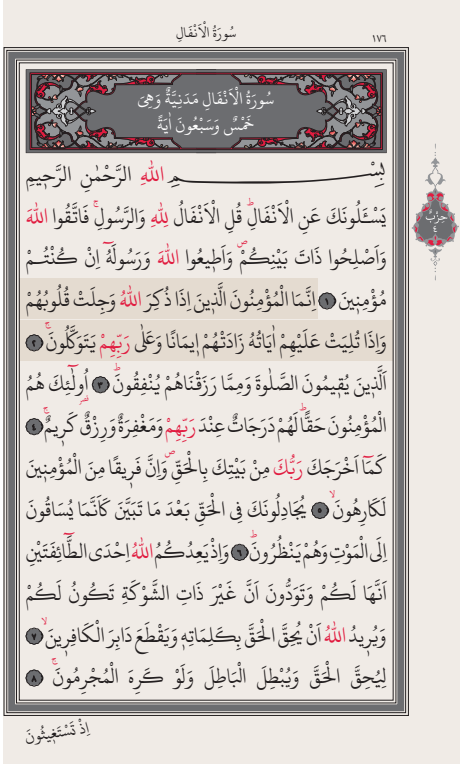 سُورَةُ الْاَنْفَالِ
١٧٦
سُورَةُ الْاَنْفَالِ مَدَنِيَّةٌ وَهِيَ
خَمْسٌ وَسَبْعُونَ اٰيَةً
بِسْــــــــمِ اللّٰهِ الرَّحْمٰنِ الرَّح۪يمِ
يَسْـَٔلُونَكَ عَنِ الْاَنْفَالِۜ قُلِ الْاَنْفَالُ لِلّٰهِ وَالرَّسُولِۚ فَاتَّقُوا اللّٰهَ
وَاَصْلِحُوا ذَاتَ بَيْنِكُمْۖ وَاَط۪يعُوا اللّٰهَ وَرَسُولَهُٓ اِنْ كُنْتُـمْ
مُؤْمِن۪ينَ ١ اِنَّمَا الْمُؤْمِنُونَ الَّذ۪ينَ اِذَا ذُكِرَ اللّٰهُ وَجِلَتْ قُلُوبُهُمْ
وَاِذَا تُلِيَتْ عَلَيْهِمْ اٰيَاتُهُ زَادَتْهُمْ ا۪يمَانًا وَعَلٰى رَبِّهِمْ يَتَوَكَّلُونَۚ ٢
اَلَّذ۪ينَ يُق۪يمُونَ الصَّلٰوةَ وَمِمَّا رَزَقْنَاهُمْ يُنْفِقُونَۜ ٣ اُو۬لٰٓئِكَ هُمُ
الْمُؤْمِنُونَ حَقًّاۜ لَهُمْ دَرَجَاتٌ عِنْدَ رَبِّهِمْ وَمَغْفِرَةٌ وَرِزْقٌ كَر۪يمٌۚ ٤
كَمَٓا اَخْرَجَكَ رَبُّكَ مِنْ بَيْتِكَ بِالْحَقِّۖ وَاِنَّ فَر۪يقًا مِنَ الْمُؤْمِن۪ينَ
لَكَارِهُونَۙ ٥ يُجَادِلُونَكَ فِي الْحَقِّ بَعْدَ مَا تَبَيَّنَ كَاَنَّمَا يُسَاقُونَ
اِلَى الْمَوْتِ وَهُمْ يَنْظُرُونَۜ ٦ وَاِذْ يَعِدُكُمُ اللّٰهُ اِحْدَى الطَّٓائِفَتَيْنِ
اَنَّهَا لَكُمْ وَتَوَدُّونَ اَنَّ غَيْرَ ذَاتِ الشَّوْكَةِ تَكُونُ لَكُمْ
وَيُر۪يدُ اللّٰهُ اَنْ يُحِقَّ الْحَقَّ بِكَلِمَاتِه۪ وَيَقْطَعَ دَابِرَ الْكَافِر۪ينَۙ ٧
لِيُحِقَّ الْحَقَّ وَيُبْطِلَ الْبَاطِلَ وَلَوْ كَرِهَ الْمُجْرِمُونَۚ ٨
حِزْبٌ
٤
اِذْ تَسْتَغ۪يثُونَ